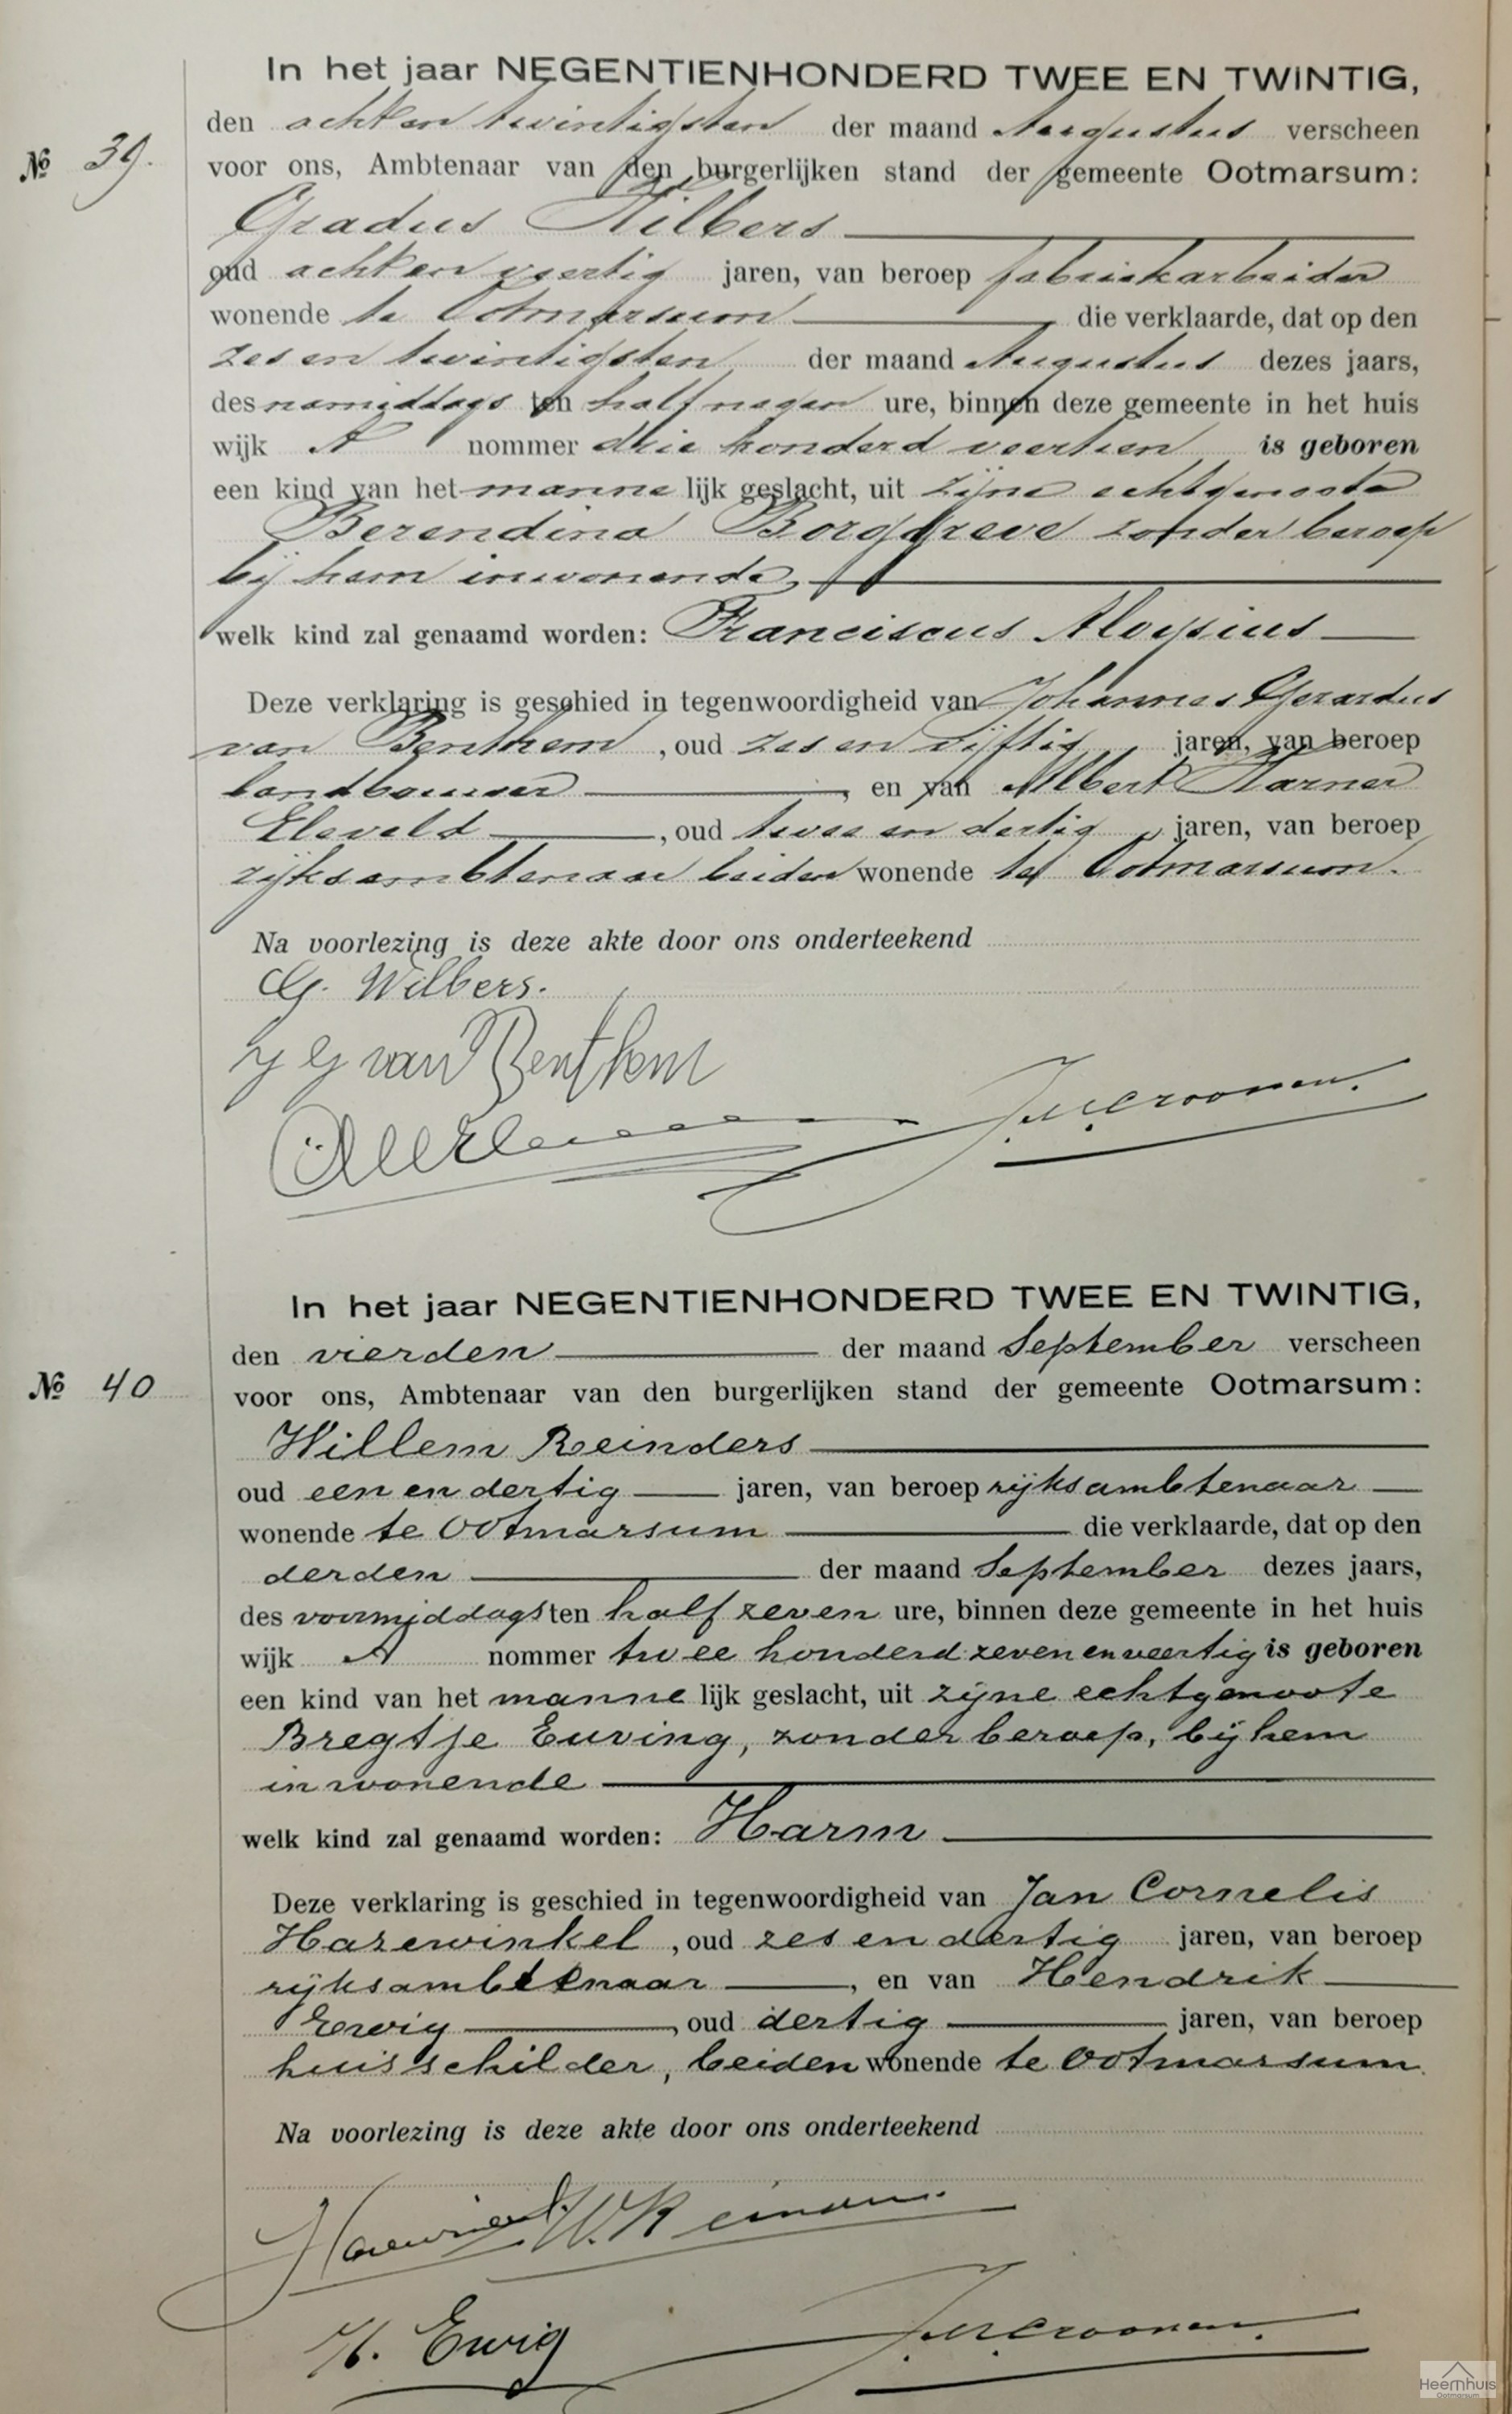 In het jaar NEGENTIENHONDERD TWEE EN TWINTIG,
den acht en twintigsten der maand Augustus verscheen
№ 39.
voor ons, Ambtenaar van den burgerlijken stand der gemeente Ootmarsum:
Gradus Wilbers
oud acht en veertig jaren, van beroep fabriekarbeider
wonende te Ootmarsum die verklaarde, dat op den
zes en twintigsten der maand Augustus dezes jaars,
des namiddags ten half negen ure, binnen deze gemeente in het huis
wijk A nommer drie honderd veertien is geboren
een kind van het manne lijk geslacht, uit zijne echtgenoote
Berendina Borggreve zonder beroep
bij hem inwonende,
welk kind zal genaamd worden: Franciscus Aloysius
Deze verklaring is geschied in tegenwoordigheid van Johannes Gerardus
van Benthem, oud zes en vijftig jaren, van beroep
landbouwer, en van Albert Harner
Eleveld, oud twee en dertig, jaren, van beroep
rijksambtenaar beiden wonende te Ootmarsum.
Na voorlezing is deze akte door ons onderteekend
G. Wilbers.
J G van Benthem
In het jaar NEGENTIENHONDERD TWEE EN TWINTIG,
den vierden der maand September verscheen
№ 40
voor ons, Ambtenaar van den burgerlijken stand der gemeente Ootmarsum:
Willem Reinders
oud een en dertig jaren, van beroep rijksambtenaar
wonende te Ootmarsum die verklaarde, dat op den
derden der maand September dezes jaars,
des voormiddags ten half zeven ure, binnen deze gemeente in het huis
wijk A nommer twee honderd zeven en veertig is geboren
een kind van het manne lijk geslacht, uit zijne echtgenoote
Bregtje Euving, zonder beroep, bij hem
inwonende
welk kind zal genaamd worden: Harm
Deze verklaring is geschied in tegenwoordigheid van Jan Cornelis
Hazewinkel, oud zes en dertig jaren, van beroep
rijksambtenaar, en van Hendrik
Ewig, oud dertig jaren, van beroep
huisschilder, beiden wonende te Ootmarsum.
Na voorlezing is deze akte door ons onderteekend
H. Ewig
Heemhuis
Ootmarsum